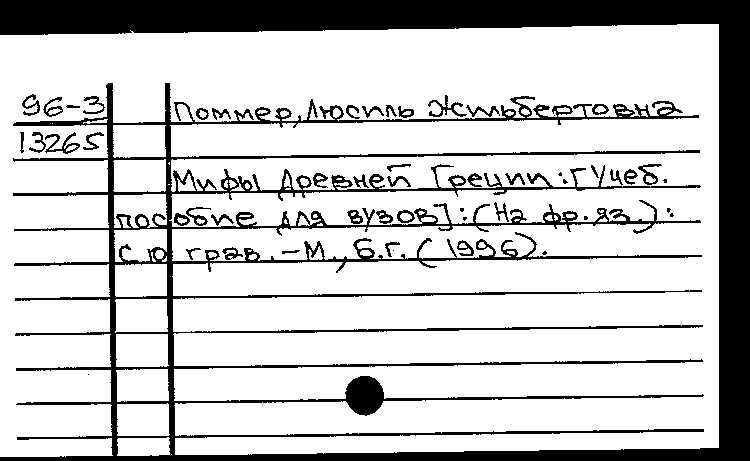 96-3
13265
Поммер, Люсиль Жильбертовна
Мифы Древней Греции: [Учеб.
пособие для вузов]: (На фр. яз.):
С ю грав. - М., Б.г. (1996).